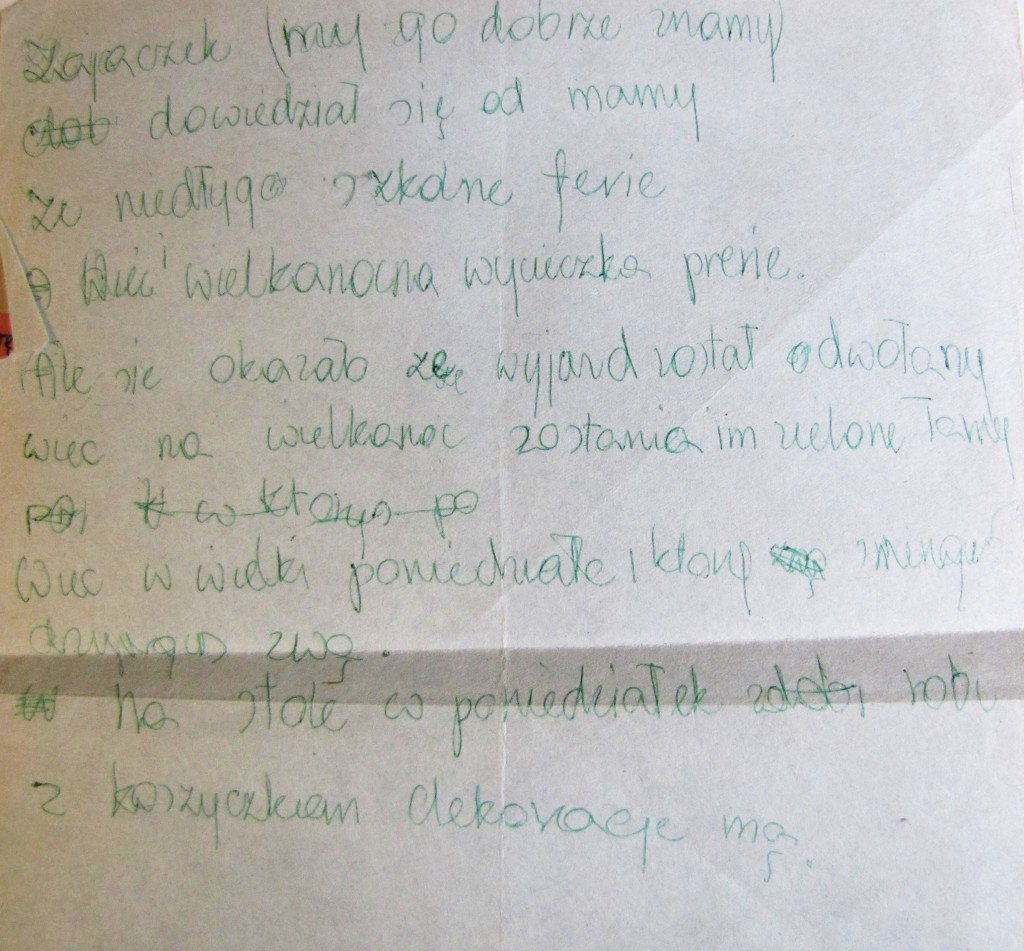 Zajączek (my go dobrze znamy)
dowiedział się od mamy
że niedłygo szkolne ferie
Więc wielkanocna wycieczka prerie.
Ale sie okazało że wyjazd został odwołany
wiec na wielkanoc zostanie im zielone
w ktorys po
Wiec w wielki poniedziałek ktory
zwą.
Na stole co poniedziałek robi
z koszyczkiem dekoracje mą.